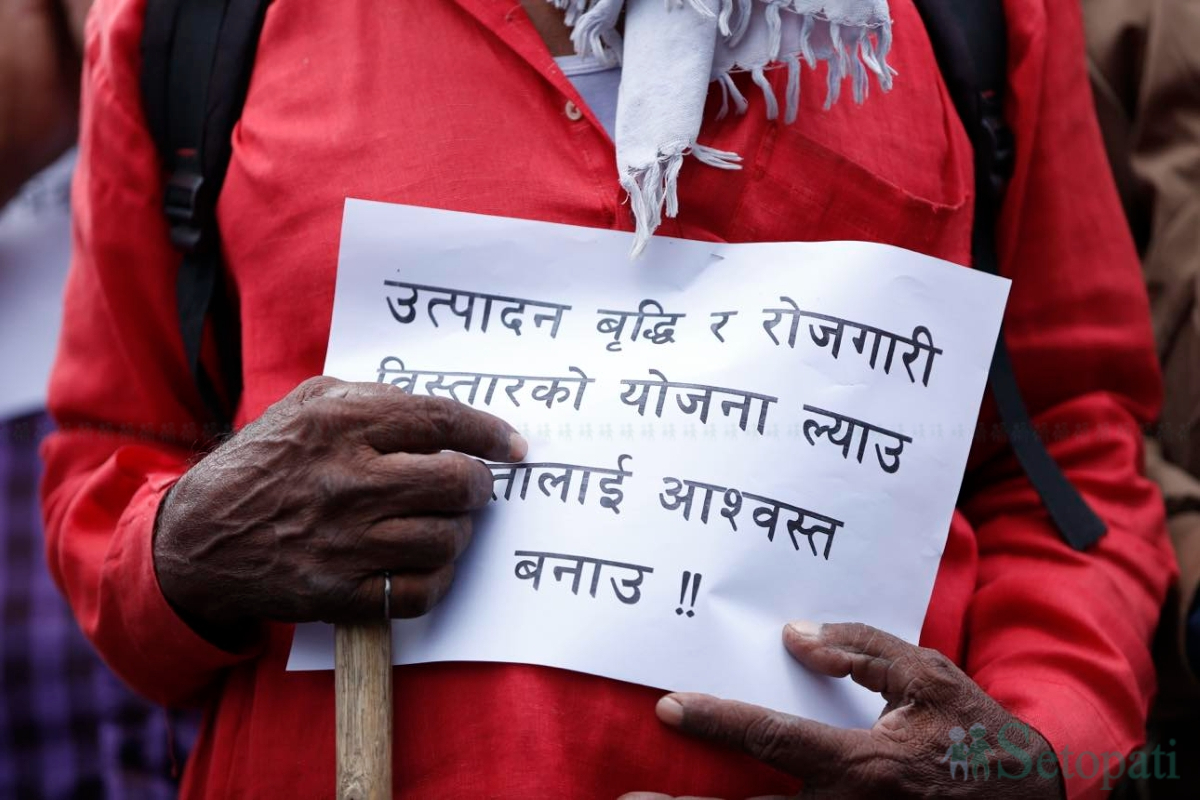 उत्पादन बृद्धि र रोजगारी
विस्तारको योजना ल्याउ
आश्वस्त
बनाउ !!
Setopati